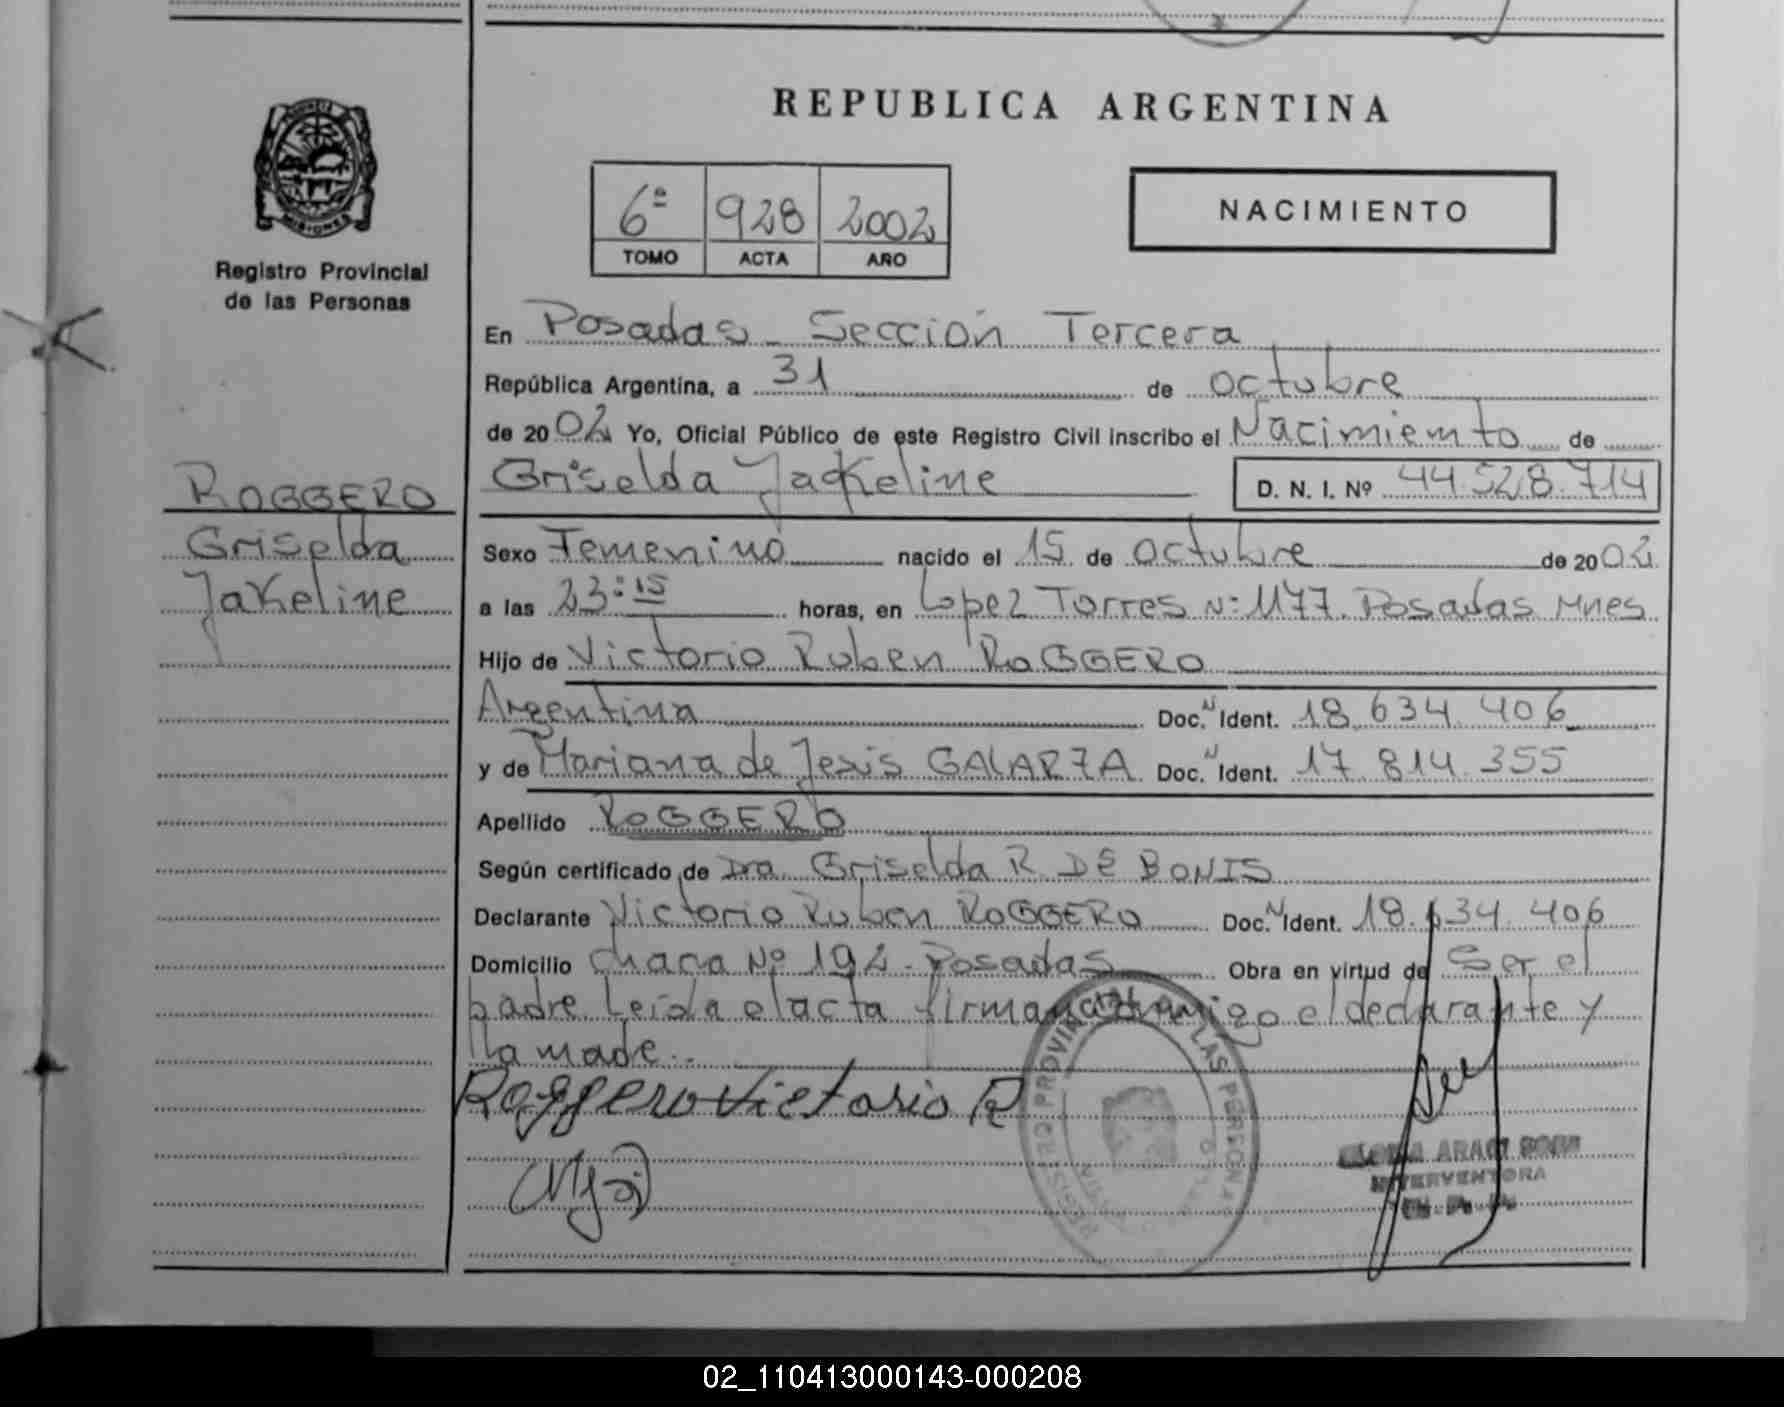 REPUBLICA ARGENTINA
MISIONES
Registro Provincial
de las Personas
6ª 928 2002
TOMO ACTA AÑO
NACIMIENTO
En Posadas - Sección Tercera
República Argentina, a 31 de octubre
de 2002 Yo, Oficial Público de este Registro Civil inscribo el Nacimiento de
Griselda Jakeline D. N. I. Nº 44.528.714
ROGGERO
Griselda
Jakeline
Sexo Femenino nacido el 15 de octubre de 2002
a las 23:15 horas, en Lopez Torres Nº 1177. Posadas Mnes
Hijo de Victorio Ruben ROGGERO
Argentina Doc. N Ident. 18.634.406
y de Mariana de Jesús GALARZA Doc. N Ident. 17.814.355
Apellido ROGGERO
Según certificado de Dra. Griselda R. DE BONIS
Declarante Victorio Ruben ROGGERO Doc. N Ident. 18.634.406
Domicilio Chacra Nº 192 - Posadas Obra en virtud de Ser el
padre Leída el acta firman conmigo el declarante y
la madre.
Roggero Victorio R
REGISTRO PROVINCIAL DE LAS PERSONAS
INTERVENTORA
02_110413000143-000208